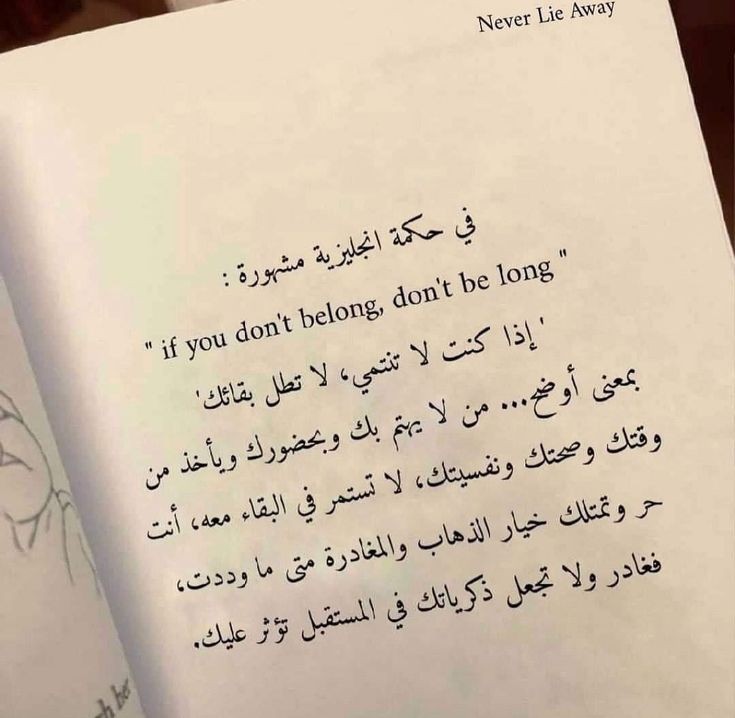 Never Lie Away
في حكمة انجليزية مشهورة :
" if you don't belong, don't be long "
'إذا كنت لا تنتمي، لا تطل بقائك'
بمعنى أوضح... من لا يهتم بك وبحضورك ويأخذ من
وقتك وصحتك ونفسيتك، لا تستمر في البقاء معه، أنت
حر وتمتلك خيار الذهاب والمغادرة متى ما وددت،
فغادر ولا تجعل ذكرياتك في المستقبل تؤثر عليك.
her